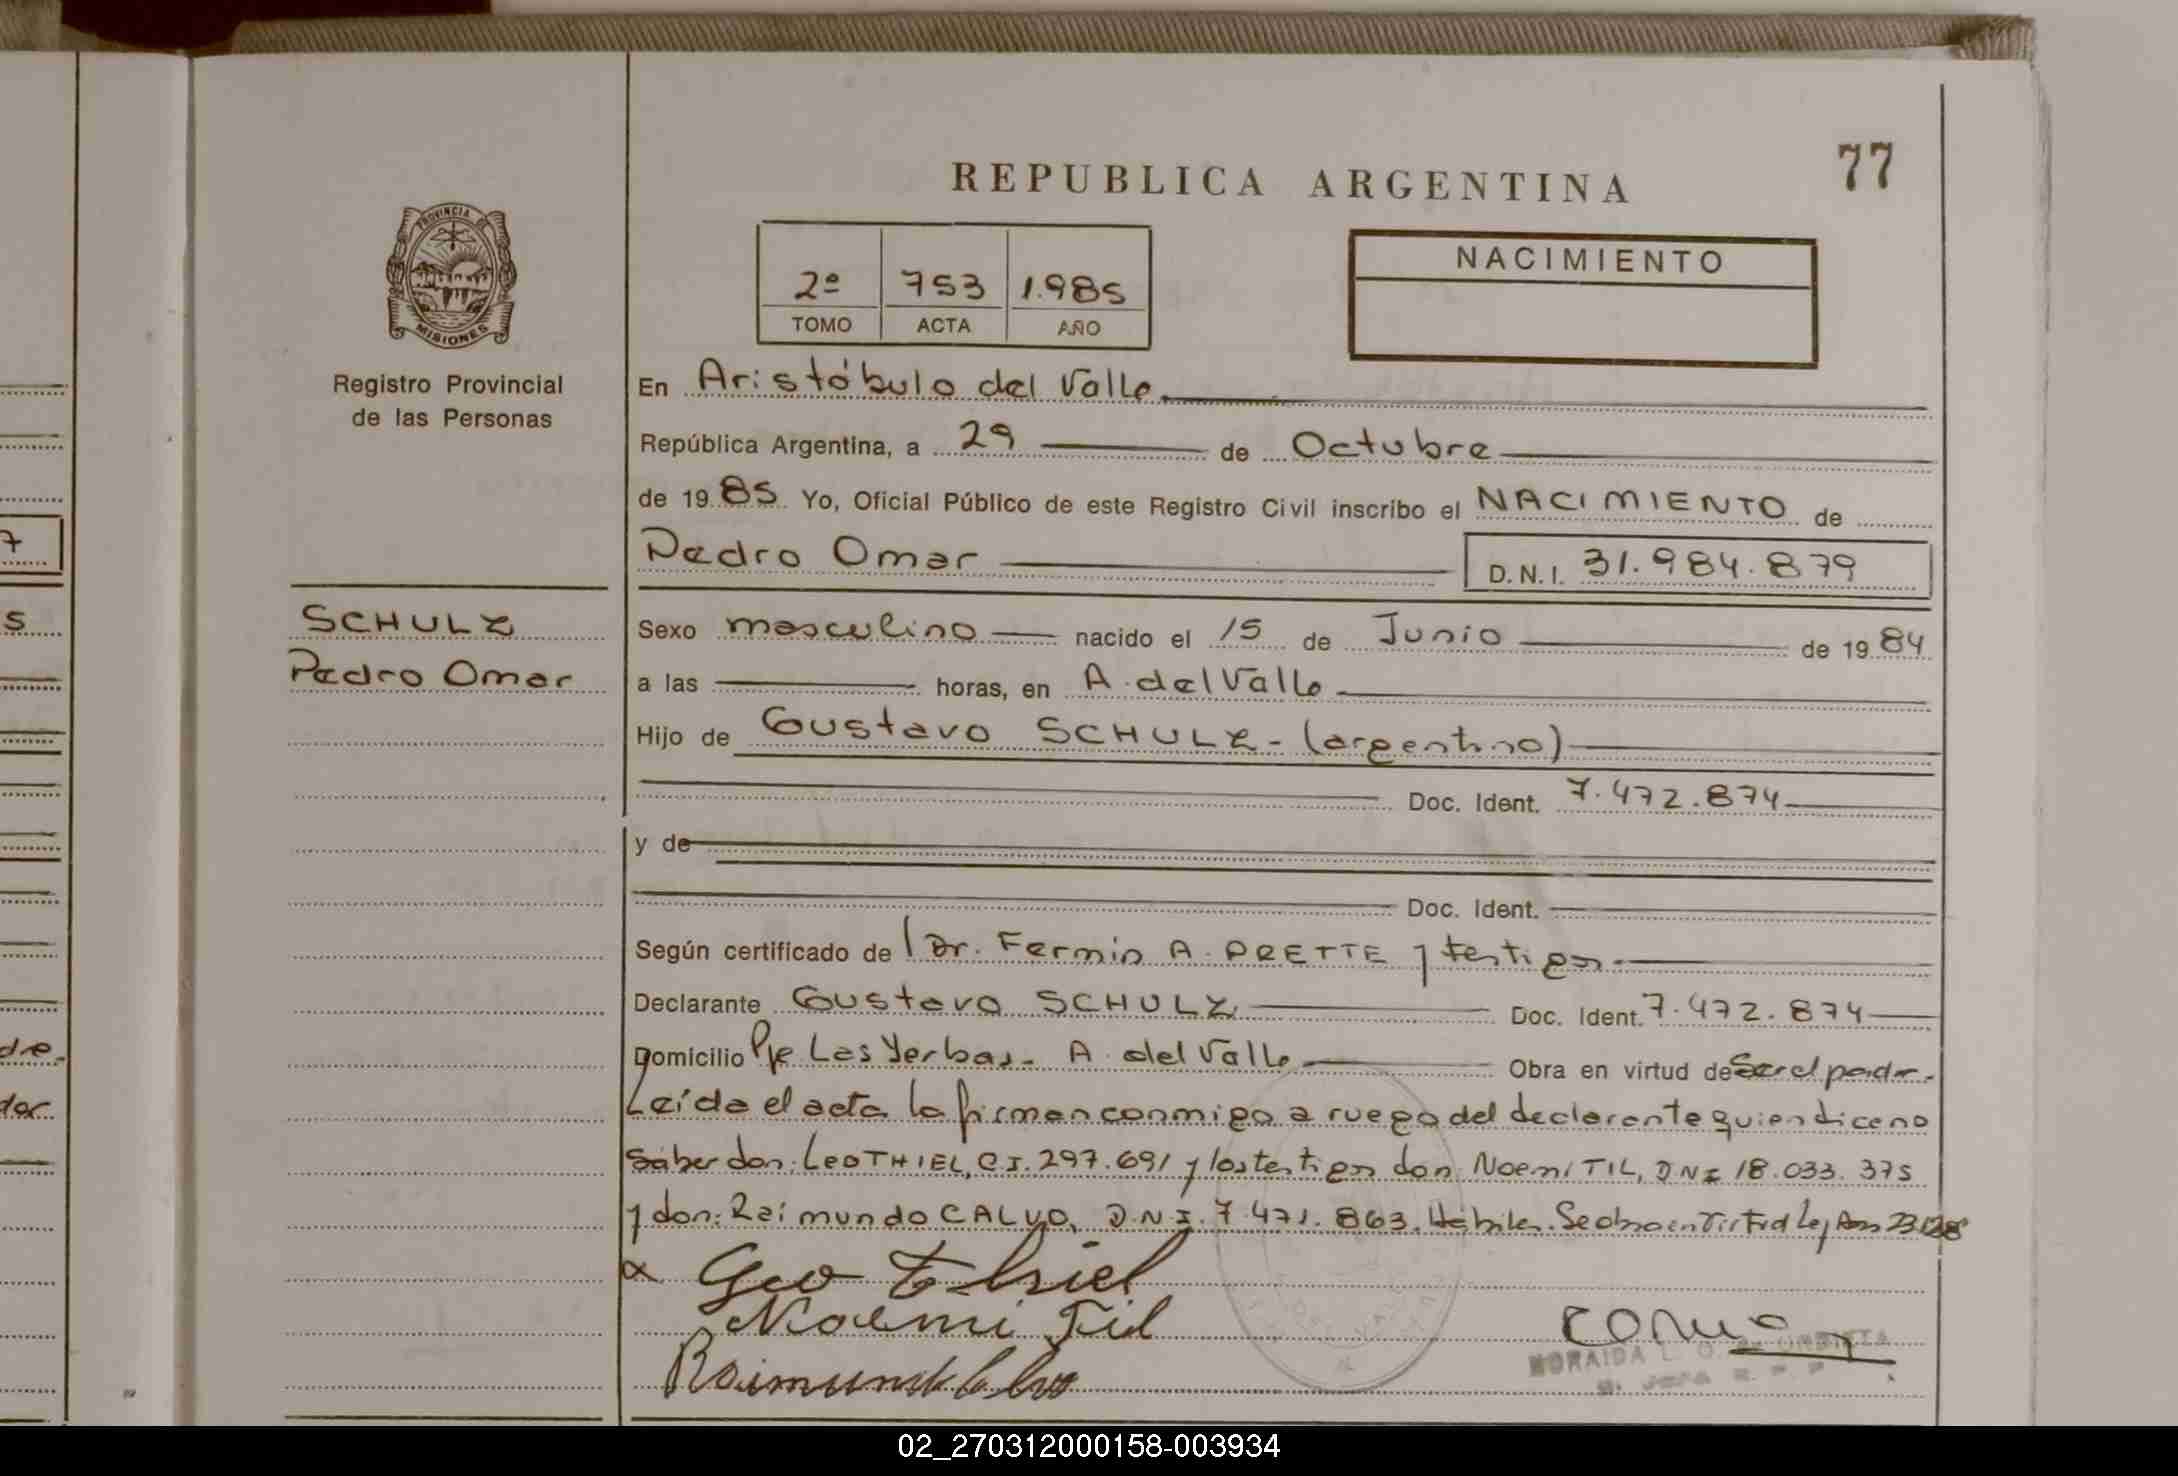 77
REPUBLICA ARGENTINA
PROVINCIA DE
MISIONES
2º 753 1.985
TOMO ACTA AÑO
NACIMIENTO
Registro Provincial
de las Personas
En Aristóbulo del Valle
República Argentina, a 29 de Octubre
de 1985 Yo, Oficial Público de este Registro Civil inscribo el NACIMIENTO de
Pedro Omar D.N.I. 31.984.879
7
SCHULZ
Pedro Omar
s
Sexo masculino nacido el 15 de Junio de 1984
a las horas, en A. del Valle
Hijo de Gustavo SCHULZ - (argentino)
Doc. Ident. 7.472.874
y de
Doc. Ident.
Según certificado de Dr. Fermin A. PRETTE y testigos
Declarante Gustavo SCHULZ Doc. Ident. 7.472.874
dre.
Domicilio Pje Las Yerbas - A. del Valle Obra en virtud de Ser el padre.
dor
Leída el acta la firman conmigo a ruego del declarante quien dice no
saber don: Leo THIEL, C.I. 297.691 y los testigos don: Noemi TIL, D.N.I 18.033.375
y don: Raimundo CALVO, D.N.I. 7.471.863. Hábiles. Se obra en virtud Ley Nro 23.128
Leo Thiel
Noemi Til
Raimundo Calvo
NORAIDA L. O. de URBIETA
02_270312000158-003934